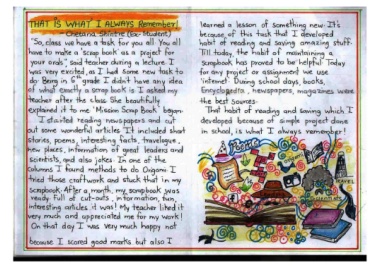 THAT IS WHAT I ALWAYS Remember!
- Chetana Shintre (Ex-Student)
"So, class we have a task for you all. You all
have to make a 'scrap book' as a project for
your orals", said teacher during a lecture. I
was very excited, as I had some new task to
do. Being in 5th grade I didn't have any idea
of what exactly a scrap book is. I asked my
teacher after the class. She beautifully
explained it to me. 'Mission Scrap Book' began.
I started reading newspapers and cut
out some wonderful articles. It included short
stories, poems, interesting facts, travelogue,
new places, information of great leaders and
scientists, and also jokes. In one of the
columns I found methods to do Origami. I
tried those craftwork and stuck that in my
scrapbook. After a month, my scrapbook was
ready. Full of cut-outs, information, fun,
interesting articles it was! My teacher liked it
very much and appreciated me for my work!
On that day I was very much happy not
because I scored good marks but also I
learned a lesson of something new. It's
because of this task that I developed
habit of reading and saving amazing stuff.
Till today, the habit of maintaining a
scrapbook has proved to be helpful. Today
for any project or assignment we use
internet. During school days books,
Encyclopedia, newspapers, magazines were
the best sources.
That habit of reading and saving which I
developed because of simple project done
in school, is what I always remember!